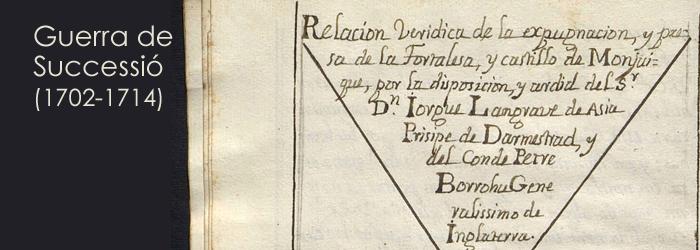 Guerra de
Successió
(1702-1714)
Relacion Veridica de la expugnacion, y pre-
sa de la Fortalesa, y castillo de Monjui-
que, por la disposicion, y ardid del Sr.
Dn. Iorgue Langrave de Asia
Prisipe de Darmestrad, y
del Conde Petre
Borrohu Gene
ralissimo de
Inglaterra.